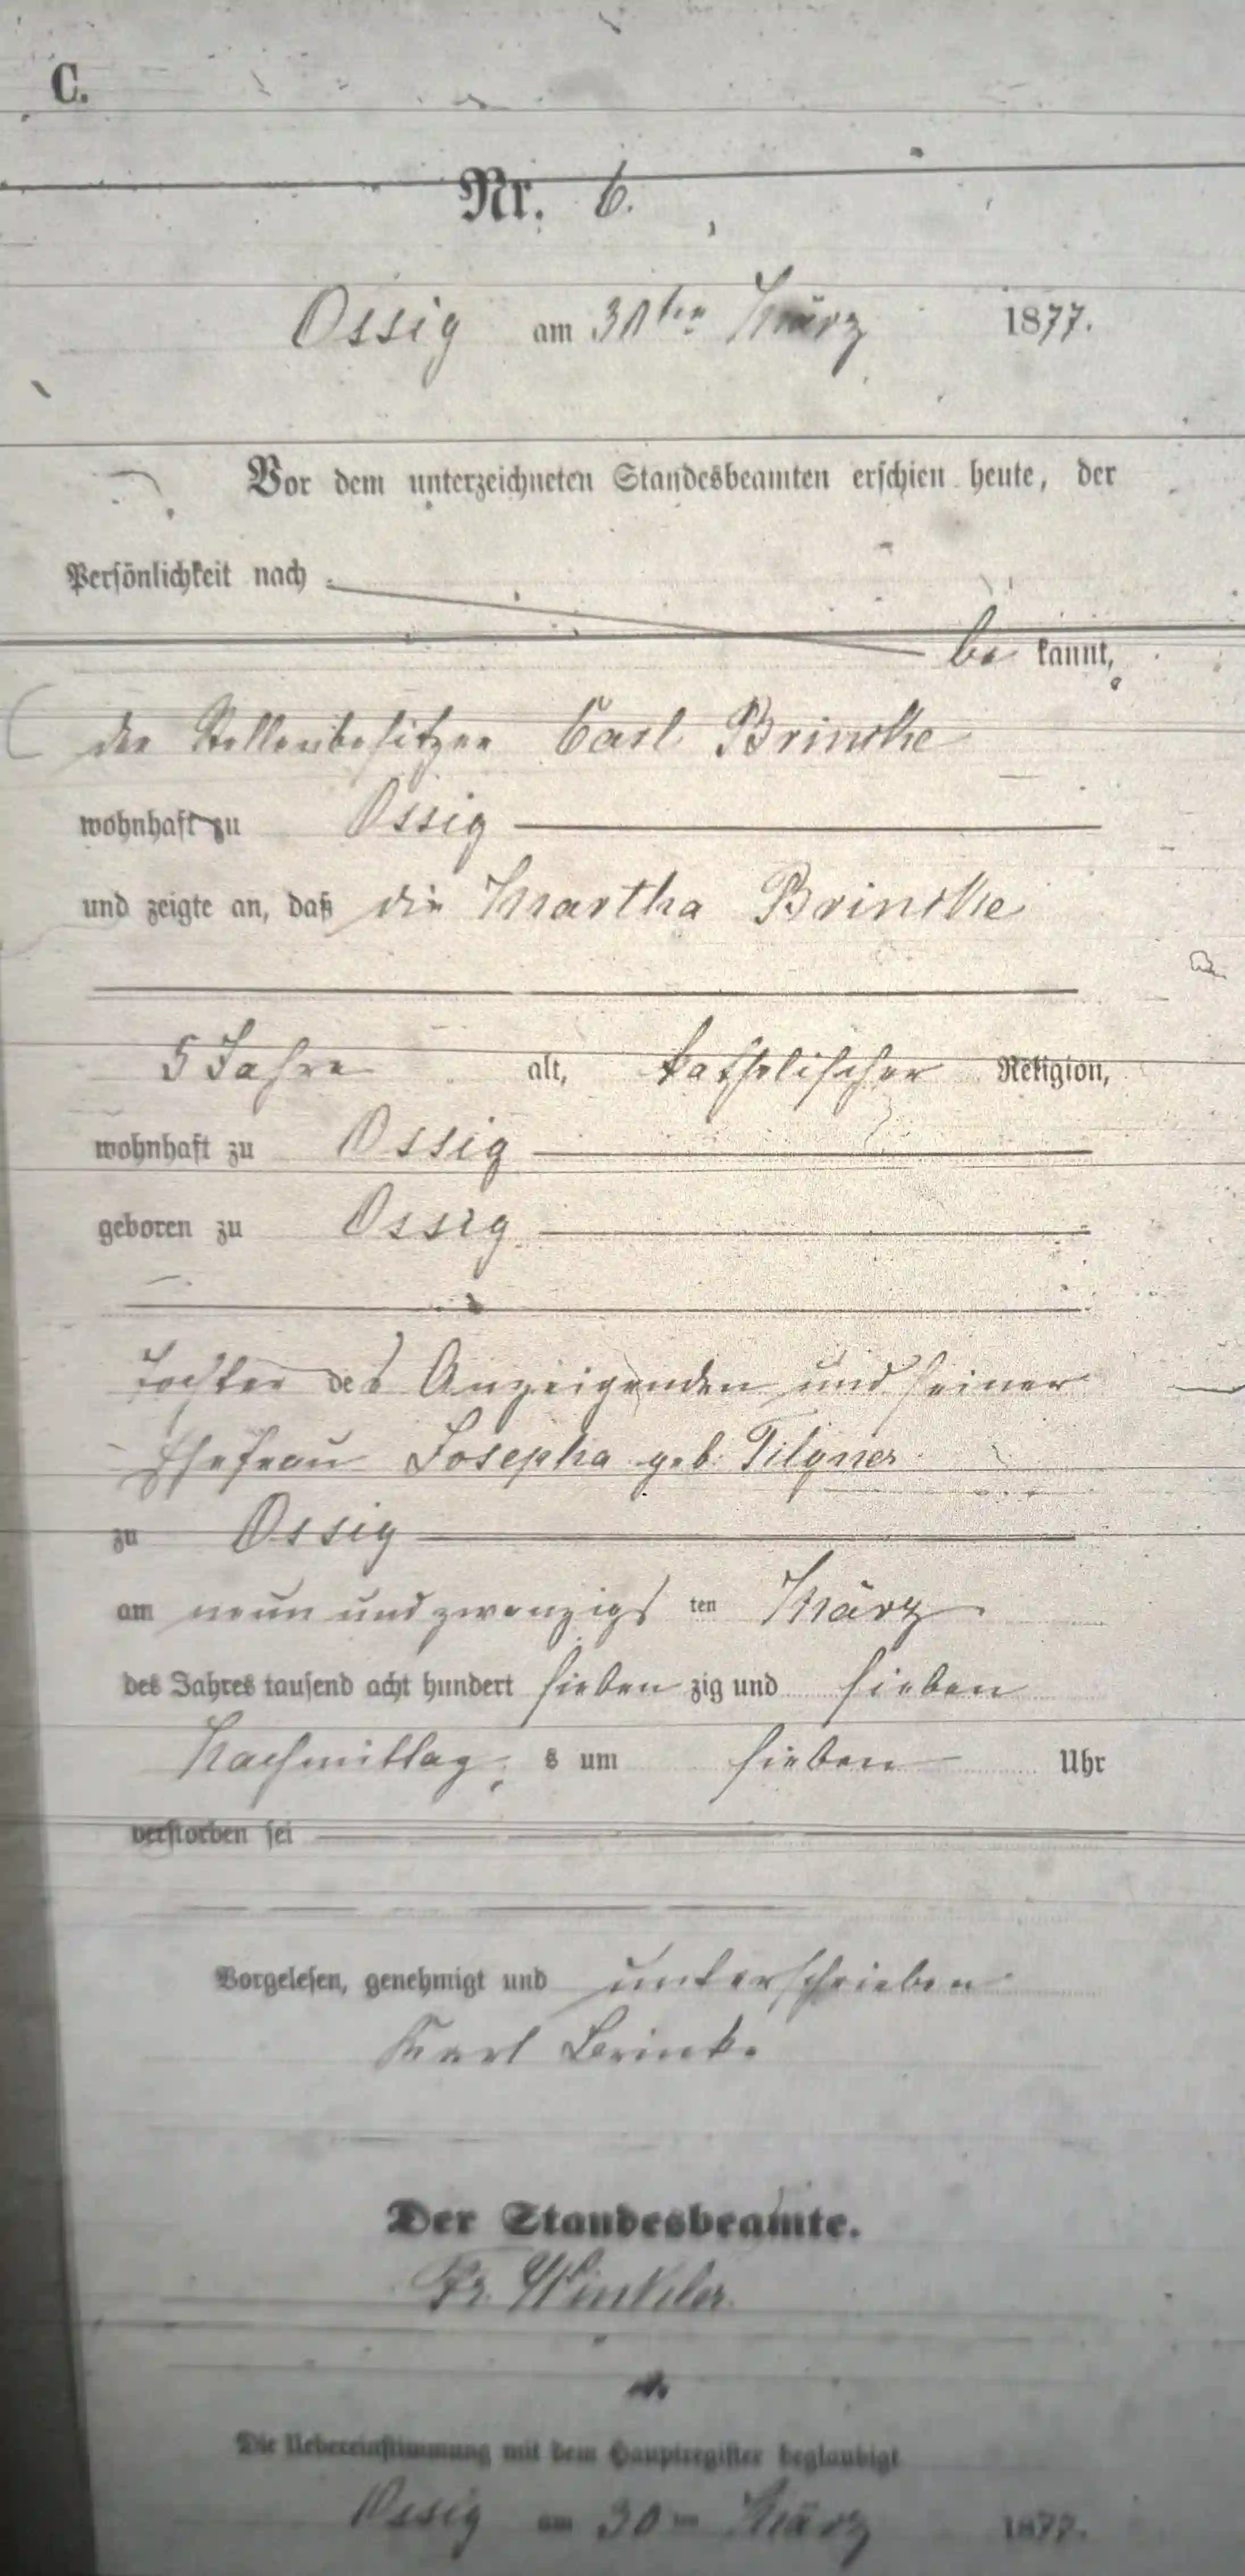 C.
Nr. 6.
Ossig am 30ten März 1877.
Vor dem unterzeichneten Standesbeamten erschien heute, der
Persönlichkeit nach
be kannt,
der Stellenbesitzer Carl Brincke
wohnhaft zu Ossig
und zeigte an, daß die Martha Brincke
5 Jahre alt, katholischer Religion,
wohnhaft zu Ossig
geboren zu Ossig
Tochter des Anzeigenden und seiner
Ehefrau Josepha geb. Tilgner
zu Ossig
am neun und zwanzigs ten März
des Jahres tausend acht hundert sieben zig und sieben
Nachmittag s um sieben Uhr
verstorben sei
Vorgelesen, genehmigt und unterschrieben
Karl Brinke
Der Standesbeamte.
Fr. Winkler
Die Uebereinstimmung mit dem Hauptregister beglaubigt
Ossig am 30ten März 1877.